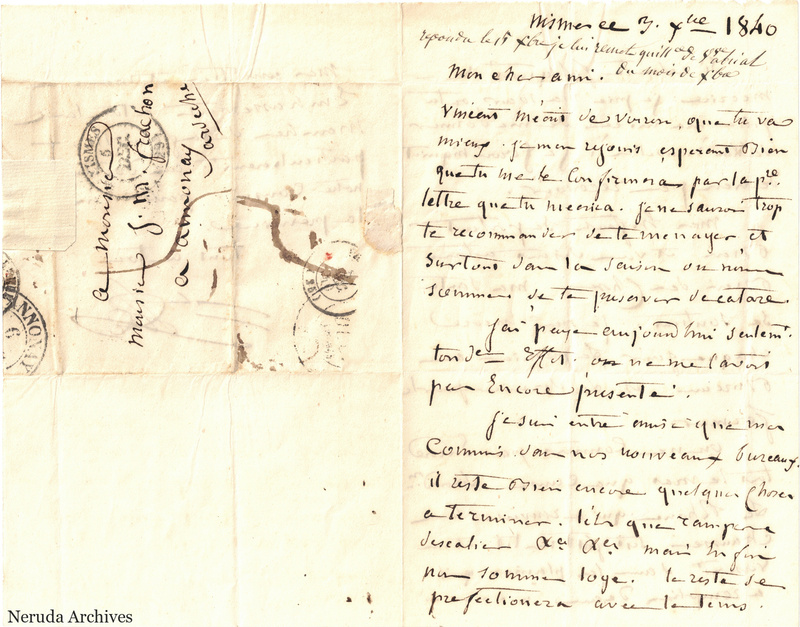 Nismes ce 3. Xbre 1840
repondu le 15 Xbre je lui remets quitt de
du mois de Xbre
Mon cher ami.
Vincent m'écrit de Voiron, que tu va
mieux. je m'en rejouis, esperant Bien
que tu me le Confirmera par la pre.
lettre que tu m'ecrira. je ne saurai trop
te recommander de te menager, et
surtout dans la saison ou nous
sommes de te preserver de catare
j'ai payé aujourdhui seulemt.
ton dr Effet. on ne me l'avait
pas Encore presenté.
je suis entré ainsi que mes
Commis dans nos nouveaux bureaux.
il reste Bien encore quelques Choses
a terminer. tels que rampe
descalier &a &a mais enfin
nous sommes logé. le reste se
perfectionera avec le tems.
a Monsieur
Monsieur J. M. Frachon
a annonay
ardeche
NISMES
5
ANNONAY
6
Neruda Archives